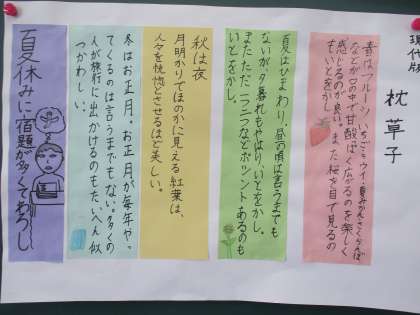 現代版
枕草子
春はフルーツ。いちご、キウイ、夏みかん、さくらんぼ
などが口の中で甘酸ぱく広がるのを楽しく
感じるのが良い。また桜を目で見るの
もいとをかし。
夏はひまわり。昼の頃は言うまでも
ないが、夕暮れもやはり、いとをかし。
またただ一つ二つなどポツントあるのも
いとをかし。
秋は夜
月明かりでほのかに見える紅葉は、
人々を恍惚とさせるほど美しい。
冬はお正月。お正月が毎年やっ
てくるのは言うまでもない。多くの
人が旅行に出かけるのもたいへん似
つかわしい。
夏休みに宿題が多くてわろし